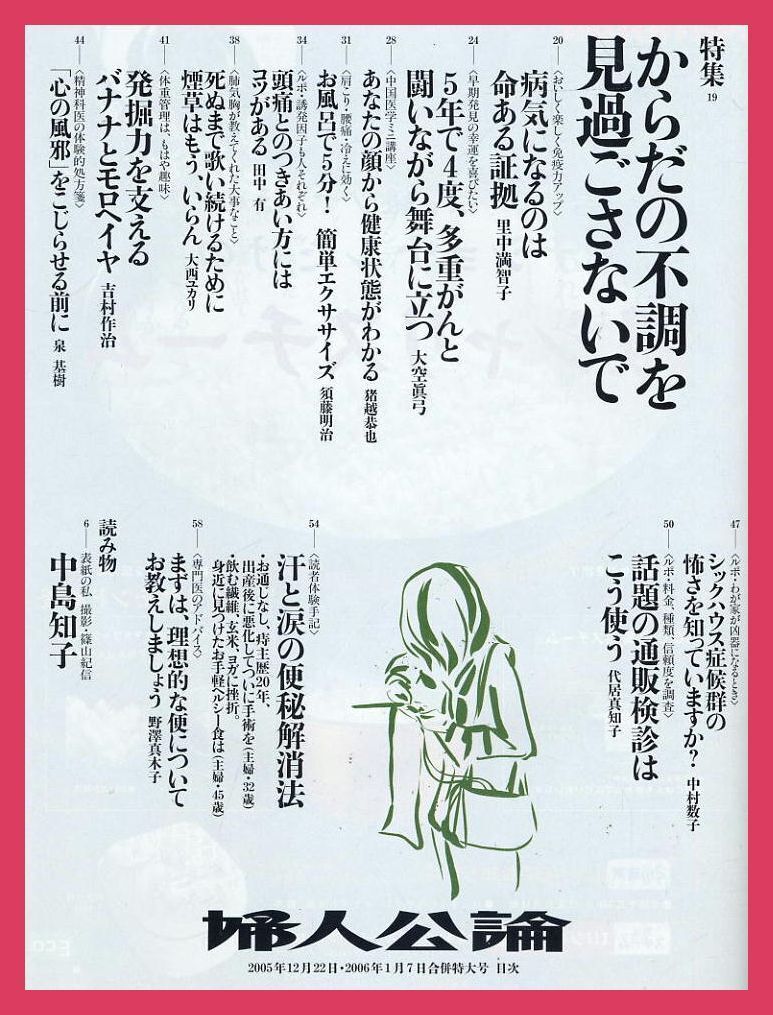 特集
19
からだの不調を
見過ごさないで
20
〈おいしく楽しく免疫力アップ〉
病気になるのは
命ある証拠 里中満智子
24
〈早期発見の幸運を喜びたい〉
5年で4度、多重がんと
闘いながら舞台に立つ 大空眞弓
28
〈中国医学ミニ講座〉
あなたの顔から健康状態がわかる 猪越恭也
31
〈肩こり・腰痛・冷えに効く〉
お風呂で5分! 簡単エクササイズ 須藤明治
34
〈ルポ・誘発因子も人それぞれ〉
頭痛とのつきあい方には
コツがある 田中 有
38
〈肺気胸が教えてくれた大事なこと〉
死ぬまで歌い続けるために
煙草はもう、いらん 大西ユカリ
41
〈体重管理は、もはや趣味〉
発掘力を支える
バナナとモロヘイヤ 吉村作治
44
〈精神科医の体験的処方箋〉
「心の風邪」をこじらせる前に 泉 基樹
47
〈ルポ・わが家が凶器になるとき〉
シックハウス症候群の
怖さを知っていますか? 中村数子
50
〈ルポ・料金、種類、信頼度を調査〉
話題の通販検診は
こう使う 代居真知子
54
〈読者体験手記〉
汗と涙の便秘解消法
・お通じなし、痔主歴20年、
出産後に悪化してついに手術を(主婦・32歳)
・飲む繊維、玄米、ヨガに挫折。
身近に見つけたお手軽ヘルシー食は(主婦・45歳)
58
〈専門医のアドバイス〉
まずは、理想的な便について
お教えしましょう 野澤真木子
読み物
6
表紙の私 撮影・篠山紀信
中島知子
婦人公論
2005年12月22日・2006年1月7日合併特大号 目次